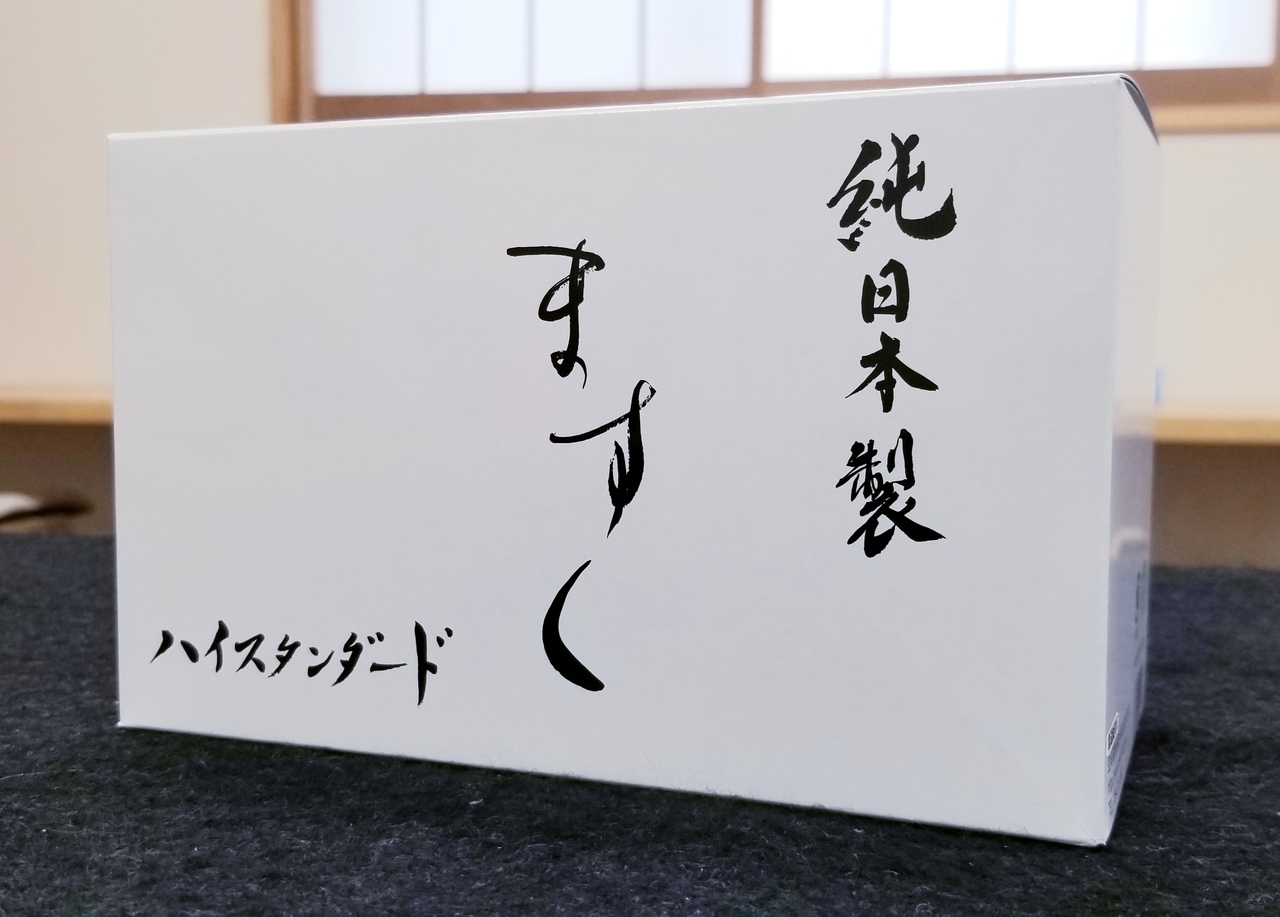 純日本製
ますく
ハイスタンダード